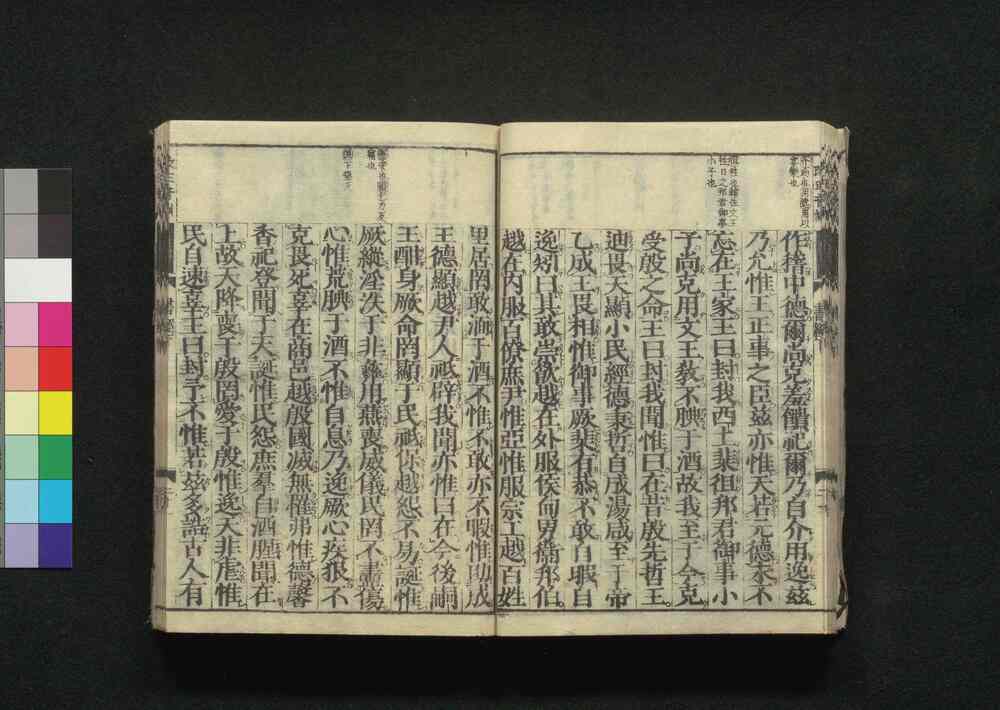 作稽中德爾尚克羞饋祀爾乃自介用逸茲
乃允惟王正事之臣茲亦惟天若元德永不
忘在王家王曰封我西土棐徂邦君御事小
子尚克用文王敎不腆于酒故我至于今克
受殷之命王曰封我聞惟曰在昔殷先哲王
迪畏天顯小民經德秉哲自成湯咸至于帝
乙成王畏相惟御事厥棐有恭不敢自暇自
逸矧曰其敢崇飮越在外服侯甸男衞邦伯
越在內服百僚庶尹惟亞惟服宗工越百姓
里居罔敢湎于酒不惟不敢亦不暇惟助成
王德顯越尹人祇辟我聞亦惟曰在今後嗣
王酣身厥命罔顯于民祇保越怨不易誕惟
厥縱淫泆于非彝用燕喪威儀民罔不衋傷
心惟荒腆于酒不惟自息乃逸厥心疾狠不
克畏死辜在商邑越殷國滅無罹弗惟德馨
香祀登聞于天誕惟民怨庶羣自酒腥聞在
上故天降喪于殷罔愛于殷惟逸天非虐惟
民自速辜王曰封予不惟若茲多誥古人有